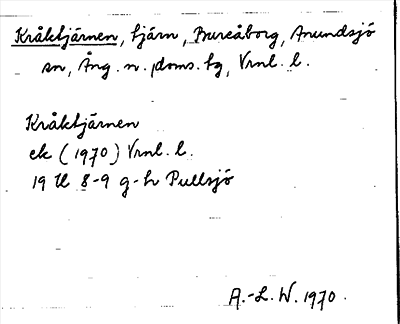 Kråktjärnen, tjärn, Bureåborg, Anundsjö
sn, Ång. n. doms. tg, Vrnl. l.
Kråktjärnen
ek (1970) Vrnl. l.
19 H 8-9 g-h Pullsjö
A.-L. W. 1970.